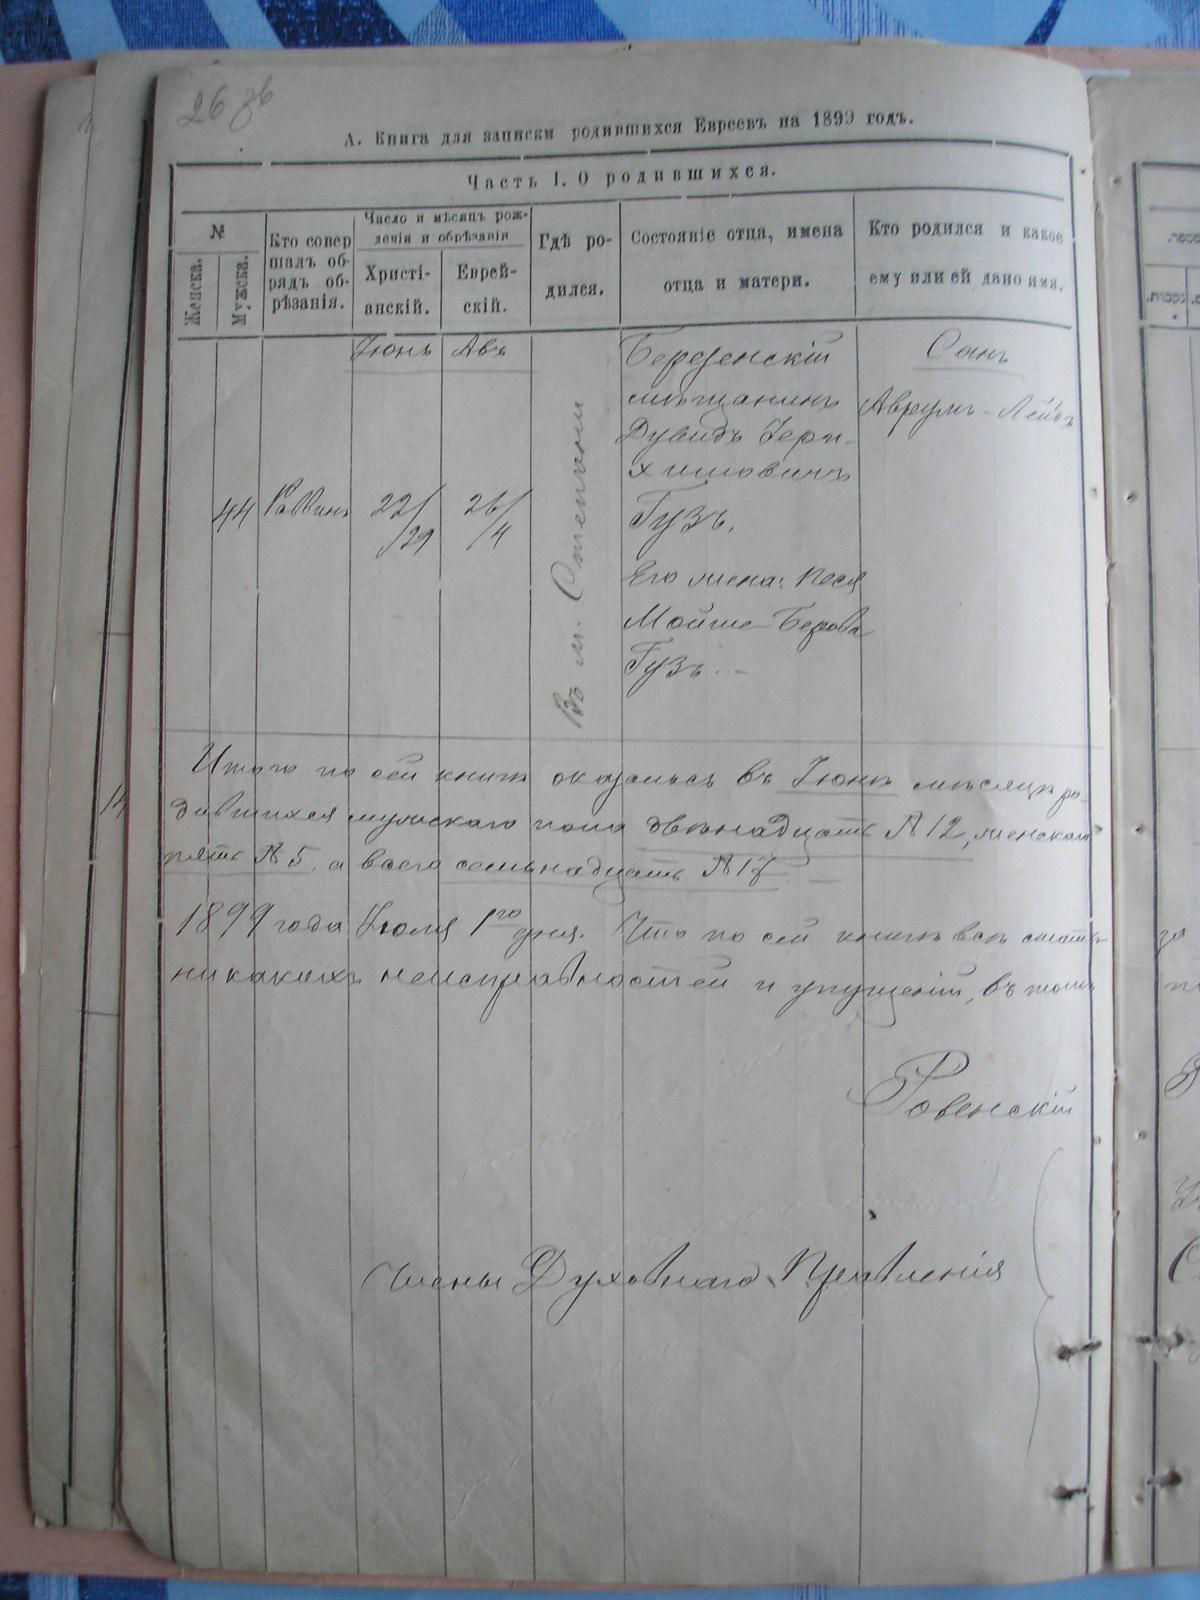 26 зв
А. Книга для записки родившихся Евреевъ на 1899 годъ.
Часть I. О родившихся.
№
Женска.
Мужска.
Кто совер
шалъ об-
рядъ об-
рѣзанія.
Число и мѣсяцъ рож-
денія и обрѣзанія
Христі-
анскій.
Еврей-
скій.
Гдѣ ро-
дился.
Состояніе отца, имена
отца и матери.
Кто родился и какое
ему или ей дано имя.
44
Раввинъ
Іюнь
22/
/29
Авъ
26/
/4
Въ м. Степани
Березенскій
мѣщанинъ
Дувидъ Герш-
ховичъ
Гузъ.
Его жена: Песя
Мойше-Берова
Гузъ. -
Сынъ
Аврумъ-Лейбъ
Итого по сей книгѣ оказалось въ Іюнѣ мѣсяцѣ ро-
дившихся мужскаго пола двѣнадцать № 12, женскаго
пять № 5. а всего семьнадцать № 17. —
1899 года Іюля 1го дня. Что по сей книгѣ всѣ статьи
никакихъ неисправностей и упущеній, въ томъ
Ровенскій
Члены Духовнаго Правленія